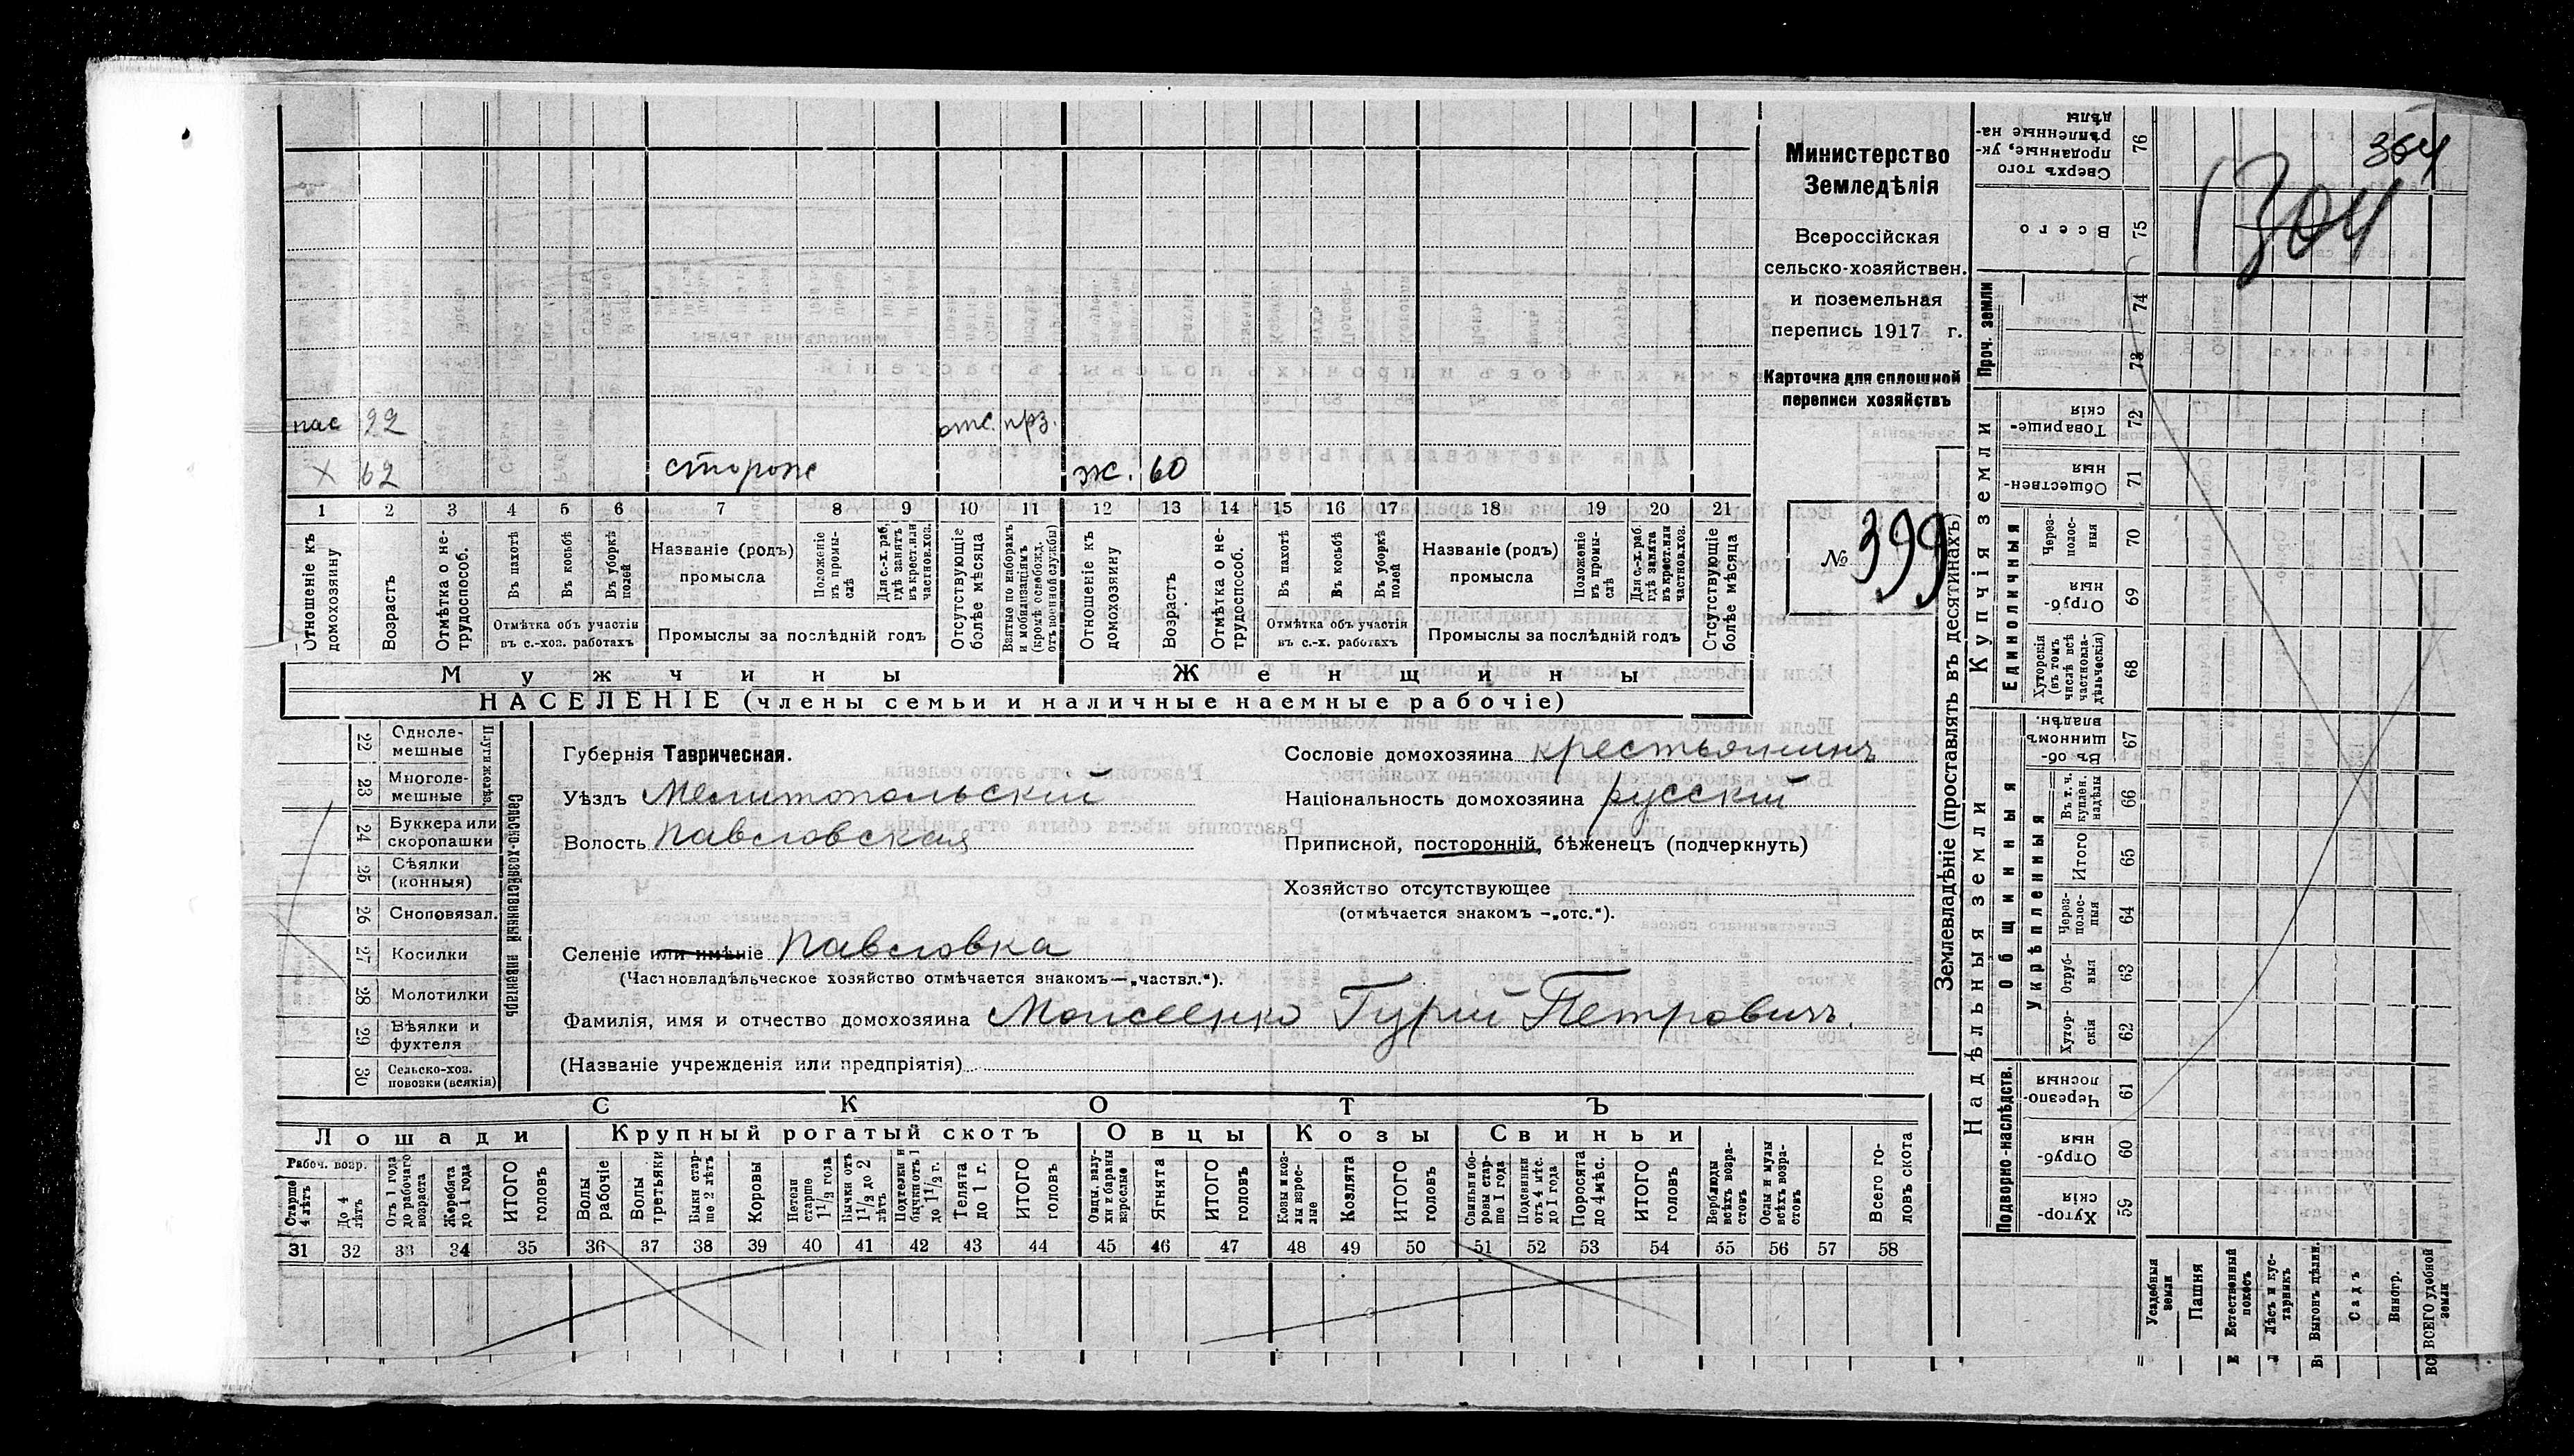 364
304
Министерство
Земледѣлія
Всероссійская
сельско-хозяйствен.
и поземельная
перепись 1917 г.
Карточка для сплошной
переписи хозяйствъ
№ 399
пас 22 отс. прз.
х 62 сторож ж. 60
1 2 3 4 5 6 7 8 9 10 11 12 13 14 15 16 17 18 19 20 21
Отношеніе къ домохозяину
Возрастъ
Отмѣтка о не-трудоспособ.
Въ пахотѣ
Въ косьбѣ
Въ уборкѣ полей
Отмѣтка объ участіи
въ с.-хоз. работахъ
Названіе (родъ)
промысла
Положеніе въ промы-слѣ
Для с.-х. раб. гдѣ занятъ въ крест. или частнов. хоз.
Промыслы за послѣдній годъ
Отсутствующіе болѣе мѣсяца
Взятые по наборамъ и мобилизаціямъ (кромѣ освобожд. отъ военной службы)
Отношеніе къ домохозяину
Возрастъ
Отмѣтка о не-трудоспособ.
Въ пахотѣ
Въ косьбѣ
Въ уборкѣ полей
Отмѣтка объ участіи
въ с.-х. работахъ
Названіе (родъ)
промысла
Положеніе въ промы-слѣ
Для с.-х. раб. гдѣ занята въ крест. или частнов. хоз.
Промыслы за послѣдній годъ
Отсутствующіе болѣе мѣсяца
Мужчины Женщины
НАСЕЛЕНІЕ (члены семьи и наличные наемные рабочіе)
22 Одноле-мешные
23 Многоле-мешные
24 Буккера или скоропашки
25 Сѣялки (конныя)
26 Сноповязал.
27 Косилки
28 Молотилки
29 Вѣялки и фухтеля
30 Сельско-хоз. повозки (всякія)
Сельско-хозяйственный инвентарь
Губернія Таврическая.
Уѣздъ Мелитопольскій
Волость Павловская
Сословіе домохозяина крестьянинъ
Національность домохозяина русскій
Приписной, посторонній, бѣженецъ (подчеркнуть)
Хозяйство отсутствующее
(отмѣчается знакомъ —„отс.“).
Селеніе или имѣніе Павловка
(Частновладѣльческое хозяйство отмѣчается знакомъ—„частвл.“).
Фамилія, имя и отчество домохозяина Моисеенко Гурій Петровичъ.
(Названіе учрежденія или предпріятія)
СКОТЪ
Лошади Крупный рогатый скотъ Овцы Козы Свиньи
Рабоч. возр.
Старше 4 лѣтъ
До 4 лѣтъ
Отъ 1 года до рабочаго возраста
Жеребята до 1 года
ИТОГО головъ
Волы рабочіе
Волы третьяки
Быки стар-ше 2 лѣтъ
Коровы
Нетели старше 1 1/2 года
Бычки отъ 1 1/2 до 2 лѣтъ
Подтелки и бычки отъ 1 до 1 1/2 г.
Телята до 1 г.
ИТОГО головъ
Овцы, валу-хи и бараны взрослые
Ягнята
ИТОГО головъ
Козы и коз-лы взрос-лые
Козлята
ИТОГО головъ
Свиньи и бо-ровы стар-ше 1 года
Подсвинки отъ 4 мѣс. до 1 года
Поросята до 4 мѣс.
ИТОГО головъ
Верблюды всѣхъ возра-стовъ
Ослы и мулы всѣхъ возра-стовъ
Всего го-ловъ скота
31 32 33 34 35 36 37 38 39 40 41 42 43 44 45 46 47 48 49 50 51 52 53 54 55 56 57 58
Землевладѣніе (проставлять въ десятинахъ)
Купчія земли
Надѣльныя земли
Проч. земли
Единоличныя
Общинныя
Укрѣпленныя
Подворно-наслѣдств.
Сверхъ того проданные, ук-рѣпленные на-дѣлы 76
Всего 75
74
73
Товарище-скія 72
Обществен-ныя 71
Через-полос-ныя 70
Отруб-ныя 69
Хуторскія (въ томъ числѣ всѣ частновла-дѣльческія) 68
Въ об-щинномъ владѣн. 67
Въ т. ч. куплен. надѣлы 66
Итого 65
Через-полос-ныя 64
Отруб-ныя 63
Хутор-скія 62
Черезпо-лосныя 61
Отруб-ныя 60
Хутор-скія 59
Усадебныя земли
Пашня
Естественный покосъ
Лѣсъ и кус-тарникъ
Выгонъ цѣлин.
Садъ
Виногр.
ВСЕГО удобной земли